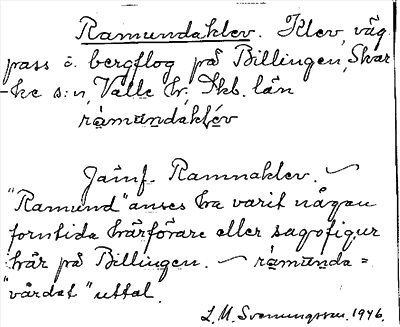 Ramundaklev. Klev, väg
pass i bergflog på Billingen, Skar
-ke s:n, Valle hr. Skb. län
ràmundaklév
Jämf. Ramnaklev. ~
"Ramund" anses ha varit någon
forntida härförare eller sagofigur
här på Billingen. ~ ràmunda =
"vårdat" uttal.
L. M. Svenungsson. 1946.